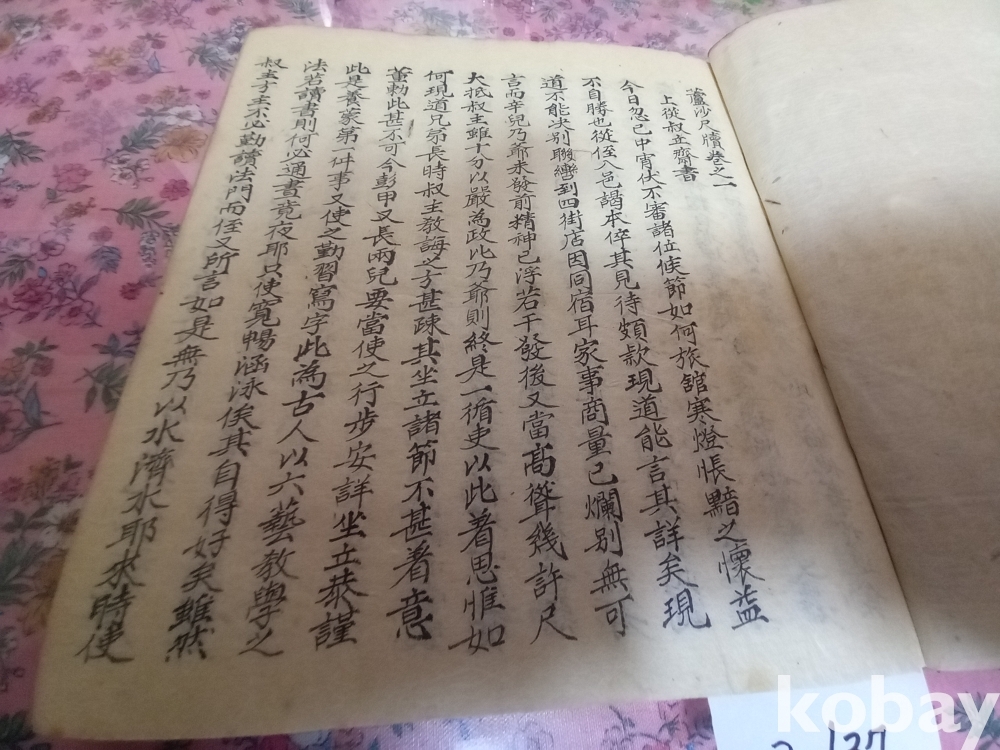 蘆沙尺牘卷之一
上從叔立齋書
今日忽已中宵伏不審諸位候節如何旅舘寒燈悵黯之懷益
不自勝也從侄入邑謁本倅其見待頗款現道能言其詳矣現
道不能決別聯轡到四街店因同宿耳家事商量已爛別無可
言而辛兒乃爺未發前精神已浮若干發後又當高聳幾許尺
大抵叔主雖十分以嚴為政此乃爺則終是一循吏以此着思惟如
何現道兄弟長時叔主敎誨之方甚疎其坐立諸節不甚着意
董勅此甚不可今彭甲又長兩兒要當使之行步安詳坐立恭謹
此是養家第一件事又使之勤習寫字此為古人以六藝敎學之
法若讀書則何必通晝竟夜耶只使寬暢涵泳俟其自得好矣雖然
叔主才主不必勤讀法門而侄又所言如是無乃以水濟水耶來時使
kobay
137